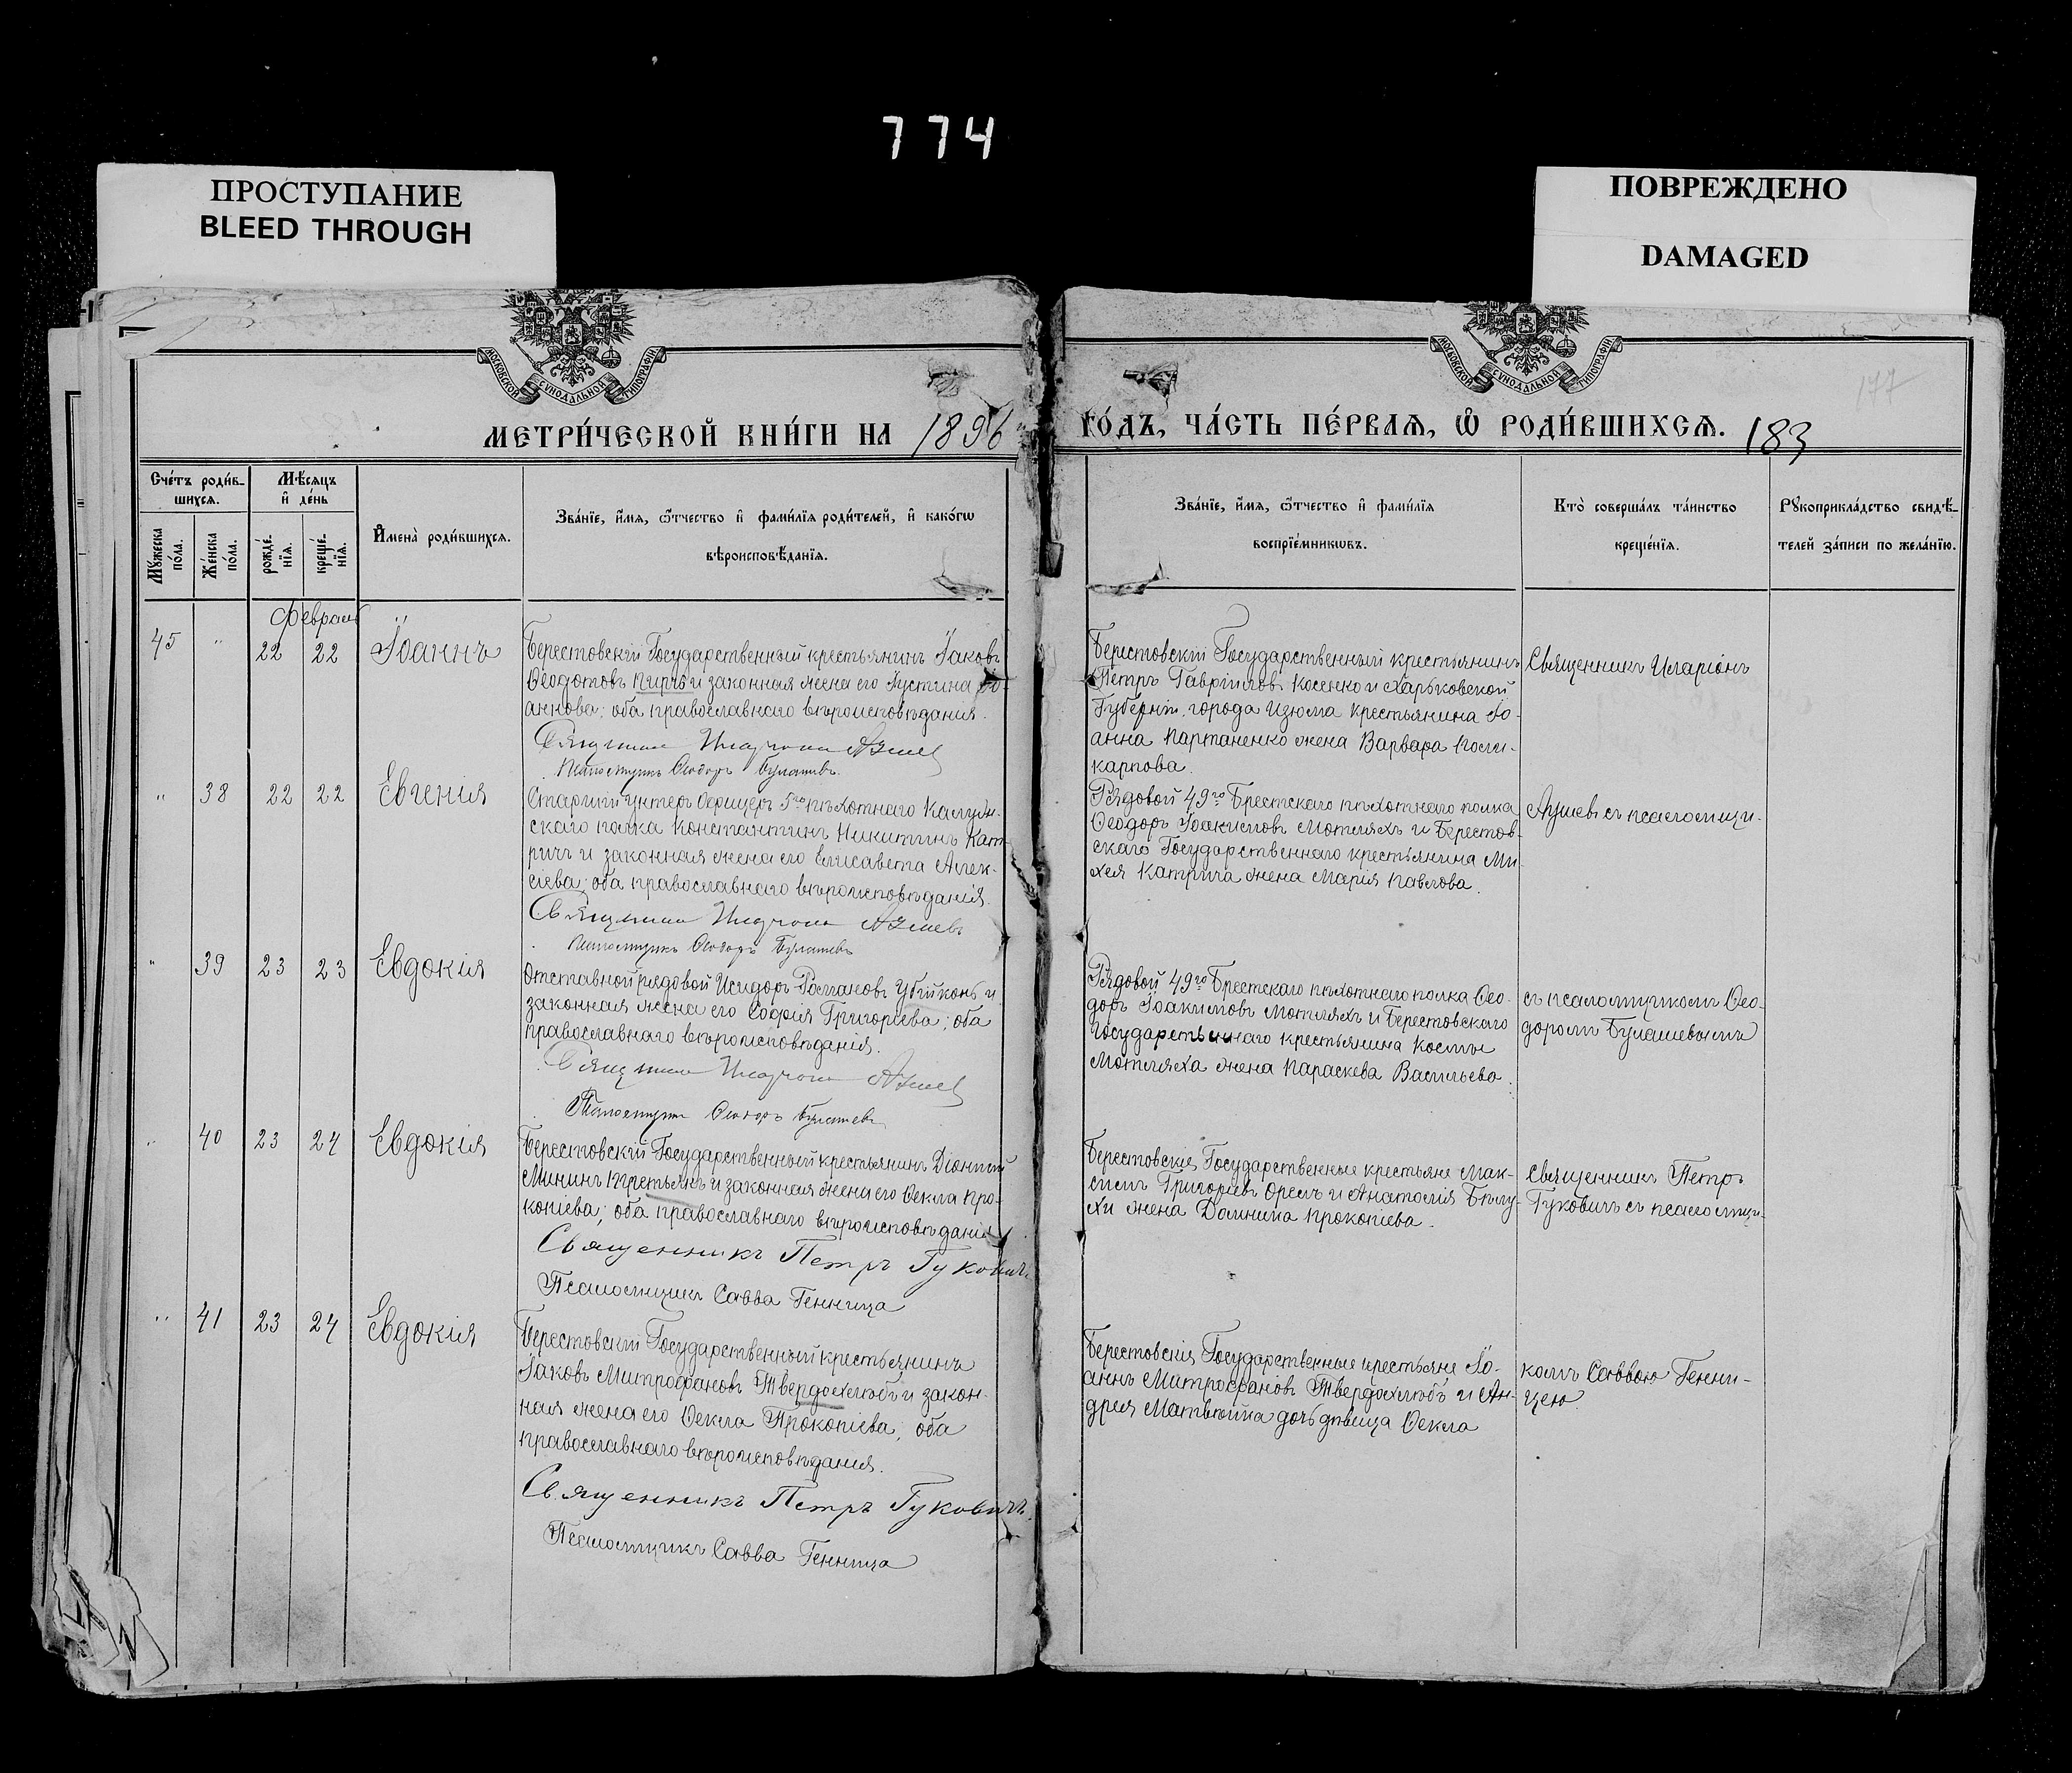 774
ПРОСТУПАНИЕ
BLEED THROUGH
ПОВРЕЖДЕНО
DAMAGED
МОСКОВСКОЙ СУНОДАЛЬНОЙ ТИПОГРАФІИ
МОСКОВСКОЙ СУНОДАЛЬНОЙ ТИПОГРАФІИ
177
МЕТРИ́ЧЕСКОЙ КНИ́ГИ НА 1896
ГО́ДЪ, ЧА́СТЬ ПЕ́РВАѦ, Ѡ҆ РОДИ́ВШИХСѦ. 183
Счéтъ роди́в-
шихсѧ.
Мѣ́сѧцъ
и҆ де́нь
Мꙋ́жеска
по́ла.
Же́нска
по́ла.
рожде́-
нїѧ.
креще́-
нїѧ.
И҆мена̀ роди́вшихсѧ.
Зва́нїе, и҆́мѧ, ѻ҆́тчество и҆ фами́лїѧ роди́телей, и҆ како́гѡ
вѣроисповѣ́данїѧ.
Зва́нїе, и҆́мѧ, ѻ҆́тчество и҆ фами́лїѧ
воспрїе́мникѡвъ.
Кто̀ соверша́лъ та́инство
креще́нїѧ.
Рꙋкоприкла́дство свидѣ́-
телей за́писи по жела́нїю.
Февраль
45 " 22 22 Іоаннъ
Берестовскій Государственный крестьянинъ Іаковъ
Ѳеодотовъ Пирчъ и законная жена его Іустина Іо-
аннова; оба православнаго вѣроисповѣданія.
Священникъ Иларіонъ Аушевъ
Псаломщикъ Ѳеодоръ Булашевъ
Берестовскій Государственный крестьянинъ
Петръ Гавріиловъ Косенко и Харьковской
Губерніи, города Изюма крестьянина Іо-
анна Партаненко жена Варвара Поли-
карпова.
Священникъ Иларіонъ
" 38 22 22 Евгенія
Старшій унтеръ офицеръ 5го пѣхотнаго Калуж-
скаго полка Константинъ Никитинъ Кат-
ричъ и законная жена его Елисавета Алек-
сіева; оба православнаго вѣроисповѣданія.
Священникъ Иларіонъ Аушевъ
Псаломщикъ Ѳеодоръ Булашевъ
Рядовой 49го Брестскаго пѣхотнаго полка
Ѳеодоръ Іоакимовъ Мотляхъ и Берестов-
скаго Государственнаго крестьянина Ми-
хея Катрича жена Марія Павлова.
Аушевъ съ псаломщи-
" 39 23 23 Евдокія
Отставной рядовой Исидоръ Романовъ Убійконь и
законная жена его Софія Григоріева; оба
православнаго вѣроисповѣданія.
Священникъ Иларіонъ Аушевъ
Псаломщикъ Ѳеодоръ Булашевъ
Рядовой 49го Брестскаго пѣхотнаго полка Ѳео-
доръ Іоакимовъ Мотляхъ и Берестовскаго
Государственнаго крестьянина Космы
Мотляха жена Параскева Васильева.
съ псаломщикомъ Ѳео-
доромъ Булашевымъ
" 40 23 24 Евдокія
Берестовскій Государственный крестьянинъ Діонисій
Мининъ Третьякъ и законная жена его Ѳекла Про-
копіева; оба православнаго вѣроисповѣданія.
Священникъ Петръ Гуковичъ
Псаломщикъ Савва Генница
Берестовскія Государственные крестьяне Мак-
симъ Григоріевъ Орелъ и Анатолія Бѣлу-
хи жена Домнина Прокопіева.
Священникъ Петръ
Гуковичъ съ псаломщи-
" 41 23 24 Евдокія
Берестовскій Государственный крестьянинъ
Іаковъ Митрофановъ Твердохлѣбъ и закон-
ная жена его Ѳекла Прокопіева; оба
православнаго вѣроисповѣданія.
Священникъ Петръ Гуковичъ
Псаломщикъ Савва Генница
Берестовскія Государственные крестьяне Іо-
аннъ Митрофановъ Твердохлѣбъ и Ан-
дрея Матвѣйка дочь дѣвица Ѳекла
комъ Саввою Генни-
цею.